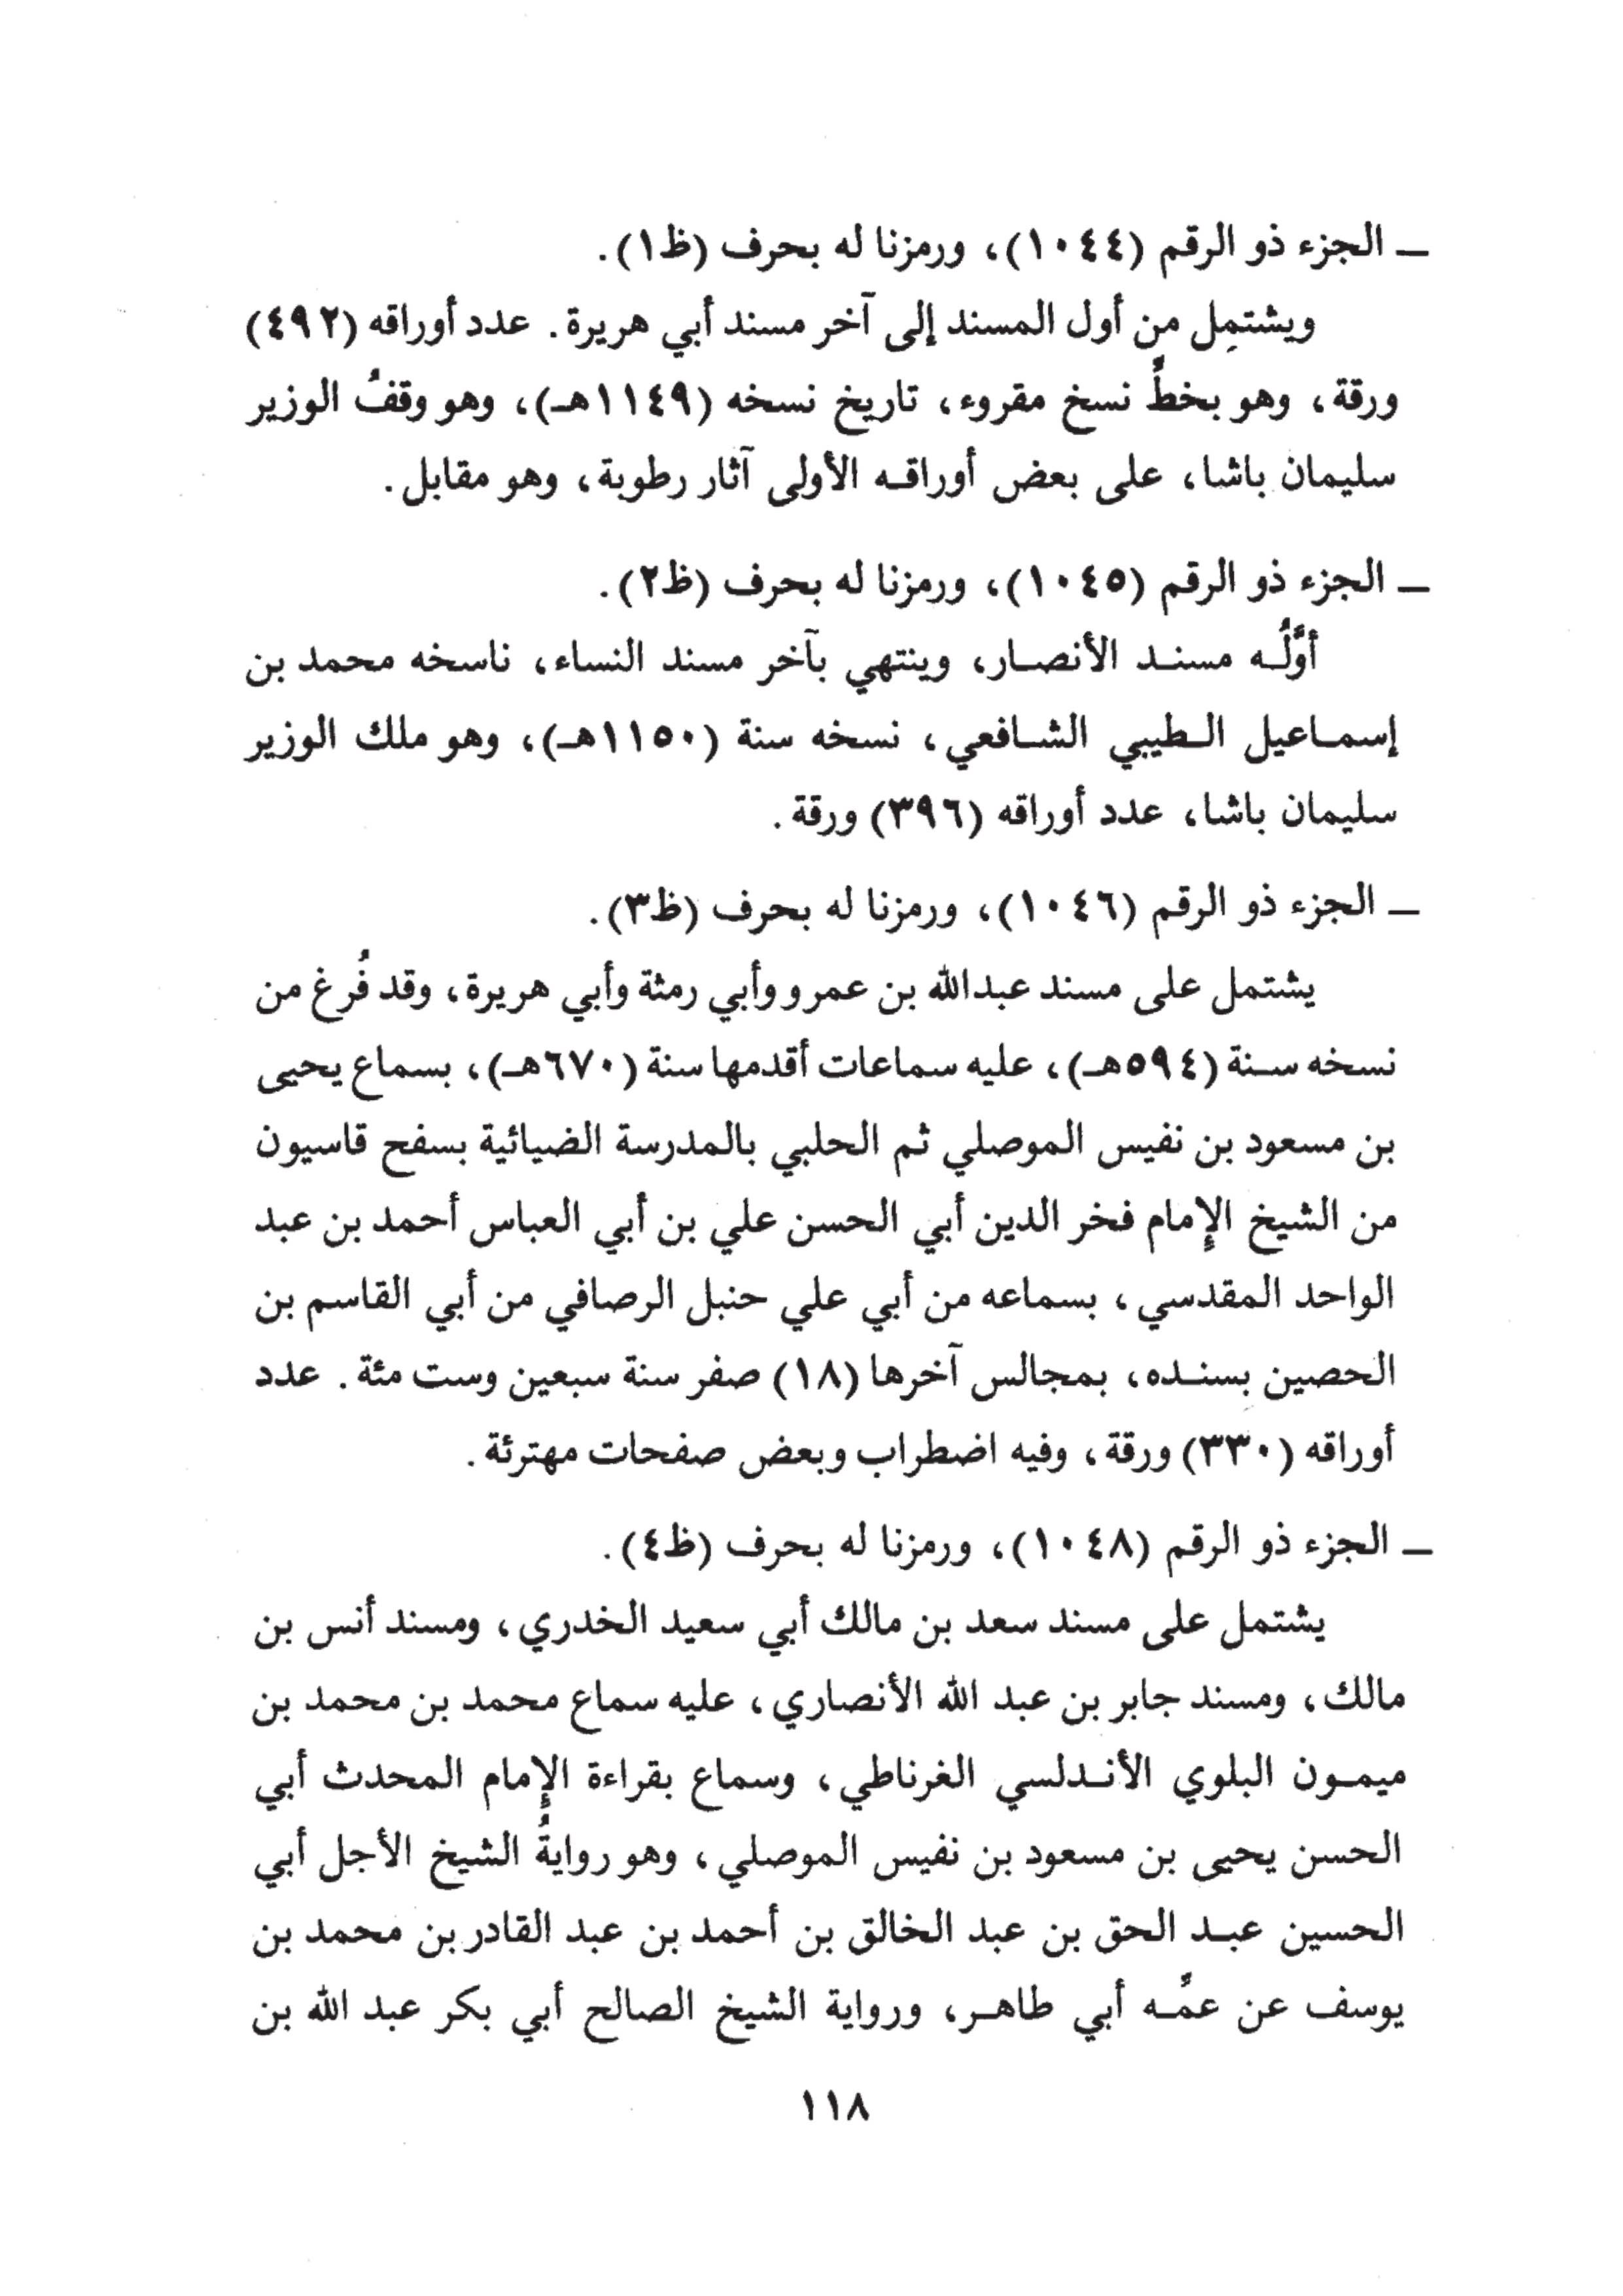 ــ الجزء ذو الرقم (١٠٤٤)، ورمزنا له بحرف (ظ١).
ويشتمِل من أول المسند إلى آخر مسند أبي هريرة. عدد أوراقه (٤٩٢)
ورقة، وهو بخطِّ نسخ مقروء، تاريخ نسخه (١١٤٩هـ)، وهو وقفُ الوزير
سليمان باشا، على بعض أوراقـه الأولى آثار رطوبة، وهو مقابل.
ــ الجزء ذو الرقم (١٠٤٥)، ورمزنا له بحرف (ظ٢).
أوَّلُـه مسنـد الأنصـار، وينتهي بآخر مسند النساء، ناسخه محمد بن
إسمـاعيل الـطيبي الشـافعي، نسخه سنة (١١٥٠هـ)، وهو ملك الوزير
سليمان باشا، عدد أوراقه (٣٩٦) ورقة.
ــ الجزء ذو الرقم (١٠٤٦)، ورمزنا له بحرف (ظ٣).
يشتمل على مسند عبدالله بن عمرو وأبي رمثة وأبي هريرة، وقد فُرغ من
نسخه سـنة (٥٩٤هـ)، عليه سماعات أقدمها سنة (٦٧٠هـ)، بسماع يحيى
بن مسعود بن نفيس الموصلي ثم الحلبي بالمدرسة الضيائية بسفح قاسيون
من الشيخ الإمام فخر الدين أبي الحسن علي بن أبي العباس أحمد بن عبد
الواحد المقدسي، بسماعه من أبي علي حنبل الرصافي من أبي القاسم بن
الحصين بسنـده، بمجالس آخرها (١٨) صفر سنة سبعين وست مئة. عدد
أوراقه (٣٣٠) ورقة، وفيه اضطراب وبعض صفحات مهترئة.
ــ الجزء ذو الرقم (١٠٤٨)، ورمزنا له بحرف (ظ٤).
يشتمل على مسند سعد بن مالك أبي سعيد الخدري، ومسند أنس بن
مالك، ومسند جابر بن عبد الله الأنصاري، عليه سماع محمد بن محمد بن
ميمـون البلوي الأنـدلسي الغرناطي، وسماع بقراءة الإمام المحدث أبي
الحسن يحيى بن مسعود بن نفيس الموصلي، وهو روايةُ الشيخ الأجل أبي
الحسين عبـد الحق بن عبد الخالق بن أحمد بن عبد القادر بن محمد بن
يوسف عن عمِّـه أبي طاهـر، ورواية الشيخ الصالح أبي بكر عبد الله بن
١١٨